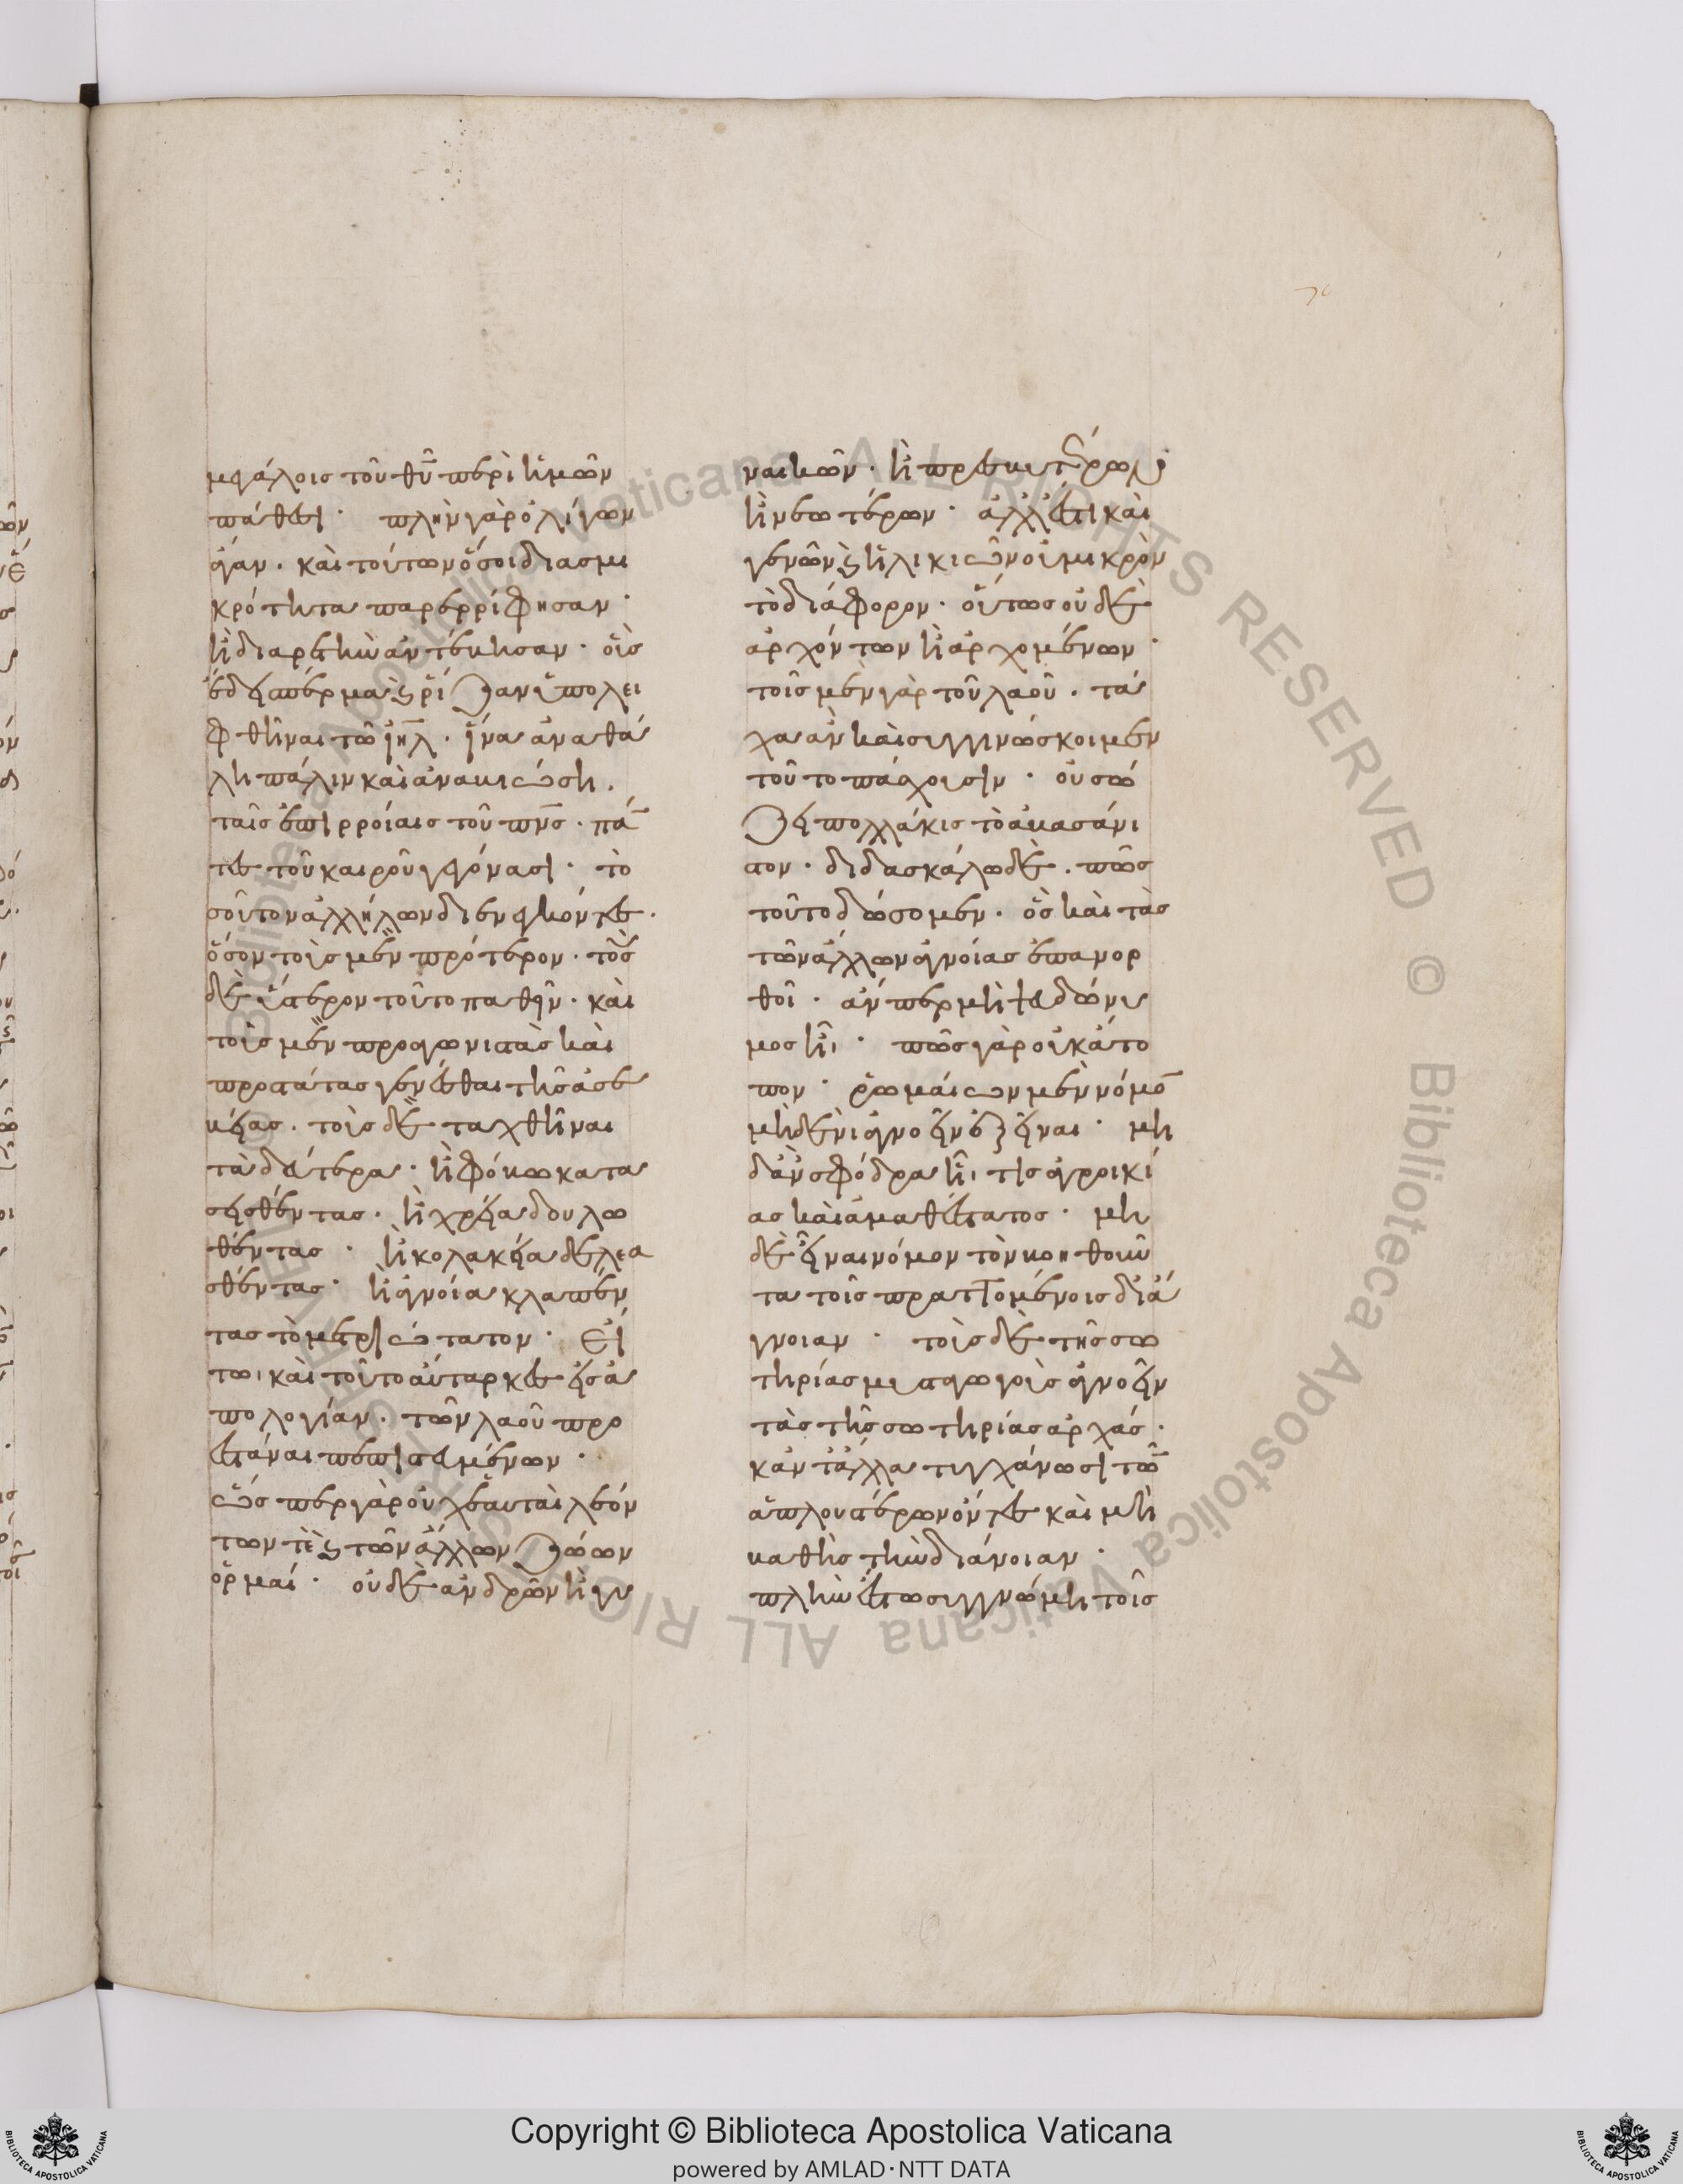 70
μεγάλοις τοῦ θ̅υ̅ περὶ ἡμῶν
πάθεσι · πλὴν γὰρ ὀλίγων
ἄγαν · καὶ τούτων ὅσοι διὰ σμι
κρότητα παρερρίφησαν ·
ἢ δι ἀρετὴν ἀντέβησαν · οἷς
ἔδει σπέρμα ϗ ῥίζαν ὑπολει
φθῆναι τῶ ι̅η̅λ̅ · ἵνα ἀναθά
λη πάλιν καὶ ἀναβιώση ·
ταῖς ἐπιρροίαις τοῦ π̅ν̅ς̅ · πά̅
τες τοῦ καιροῦ γεγόνασι · το
σοῦτον ἀλλήλων διενεγκόντες ·
ὅσον τοὺς μὲν πρότερον · τοὺς
δὲ ὕστερον τοῦτο παθεῖν · καὶ
τοὺς μὲν προαγωνιστὰς καὶ
προστάτας γενέσθαι τῆς ἀσε
βείας · τοὺς δὲ ταχθῆναι
τὰ δεύτερα · ἢ φόβω κατα
σεισθέντας · ἢ χρεία δουλω
θέντας · ἢ κολακεία δελεα
σθέντας · ἢ ἀγνοία κλαπέν
τας τὸ μετριώτατον · Εἴ
τωι καὶ τοῦτο αὔταρκες εἰς ἀ
πολογίαν · τῶν λαοῦ προ
εστάναι πεπιστευμένων ·
ὥσπερ γὰρ οὐχ ἑαυταὶ λεόν
των τὲ ϗ τῶν ἄλλων ζώων
ὁρμαί · οὐδὲ ἀνδρῶν ἢ γυ
ναικῶν · ἢ πρεσβυτέρων
ἢ νεωτέρων · ἀλλ ἔστι καὶ
γενῶν ϗ ἡλικιῶν οὐ μικρὸν
τὸ διάφορον · οὕτως οὐδὲ
ἀρχόντων ἢ ἀρχομένων ·
τοῖς μὲν γὰρ τοῦ λαοῦ · τά
χα ἂν καὶ συγγινώσκοιμεν
τοῦτο πάσχουσιν · οὓς σώ
ζει πολλάκις τὸ ἀβασάνι
στον · διδασκάλω δὲ · πῶς
τοῦτο δώσομεν · ὃς καὶ τὰς
τῶν ἄλλων ἀγνοίας ἐπανορ
θοῖ · ἄνπερ μὴ ψευδώνυ
μος ἦι · πῶς γὰρ οὐκ ἄτο
πον · ῥωμαίων μὲν νόμο̅
μηδενὶ ἀγνοεῖν ἐξεῖναι · μη
δ ἂν σφόδρα ἦι τίς ἀγροικί
ας καὶ ἀμαθέστατος · μη
δὲ εἶναι νόμον τὸν βοηθοῦν
τα τοῖς πραττομένοις δι ἄ
γνοιαν · τοὺς δὲ τῆς σω
τηρίας μυσταγωγοὺς ἀγνοεῖν
τὰς τῆς σωτηρίας ἀρχάς ·
κἂν τἄλλα τυγχάνωσι τῶ̅
ἁπλουστέρων ὄντες καὶ μὴ
βαθεῖς τὴν διάνοιαν ·
πλὴν ἔστω συγγνώμη τοῖς
Copyright © Biblioteca Apostolica Vaticana
powered by AMLAD·NTT DATA